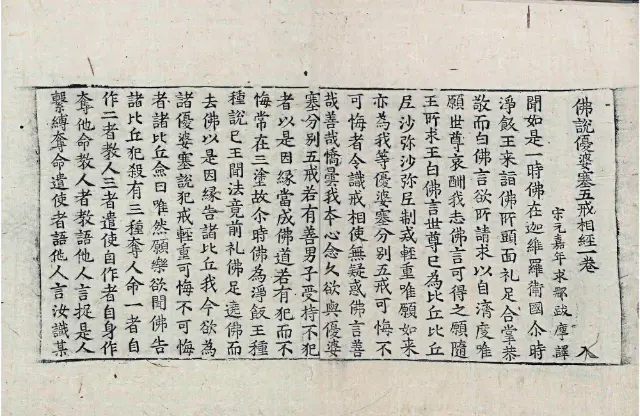 佛說優婆塞五戒相經一卷 入
宋元嘉年求那跋摩譯
聞如是一時佛在迦維羅衛國尒時
淨飯王来詣佛所頭面礼足合掌恭
敬而白佛言欲所請求以自濟度唯
願世尊哀酬我志佛言可得之願隨
王所求王白佛言世尊已為比丘比丘
尼沙弥沙弥尼制戒輕重唯願如来
亦為我等優婆塞分別五戒可悔不
可悔者令識戒相使無疑惑佛言善
哉善哉憍曇我本心念久欲與優婆
塞分別五戒若有善男子受持不犯
者以是因縁當成佛道若有犯而不
悔常在三塗故尒時佛為淨飯王種
種說已王聞法竟前礼佛足遶佛而
去佛以是因縁告諸比丘我今欲為
諸優婆塞說犯戒輕重可悔不可悔
者諸比丘僉曰唯然願樂欲聞佛告
諸比丘犯殺有三種奪人命一者自
作二者教人三者遣使自作者自身作
奪他命教人者教語他人言捉是人
繫縛奪命遣使者語他人言汝識某